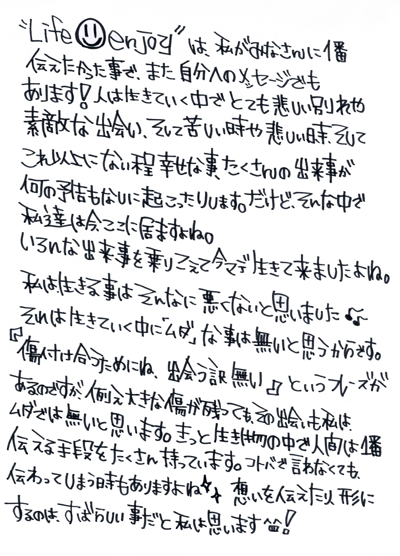 "Life☺enjoy"は、私がみなさんに1番
伝えたかった事で、また自分へのメッセージでも
あります!人は生きていく中でとても悲しい別れや
素敵な出会い、そして苦しい時や悲しい時、そして
これ以上にない程幸せな事、たくさんの出来事が
何の予告もなしに起こったりします。だけど、そんな中で
私達は今、ここに居ますよね。
いろんな出来事を乗りこえて今マデ生きて来ましたよね。
私は生きる事はそんなに悪くないと思いました♪
それは生きていく中に「ムダ」な事は無いと思うからです。
『傷付け合うためにね、出会う訳無い』というフレーズが
あるのですが、例え大きな傷が残っても、その出会いも私は、
ムダでは無いと思います。きっと生き物の中で人間は1番
伝える手段をたくさん持っています。コトバで言わなくても、
伝わってしまう時もありますよね☆ 想いを伝えたり形に
するのは、すばらしい事だと私は思います!